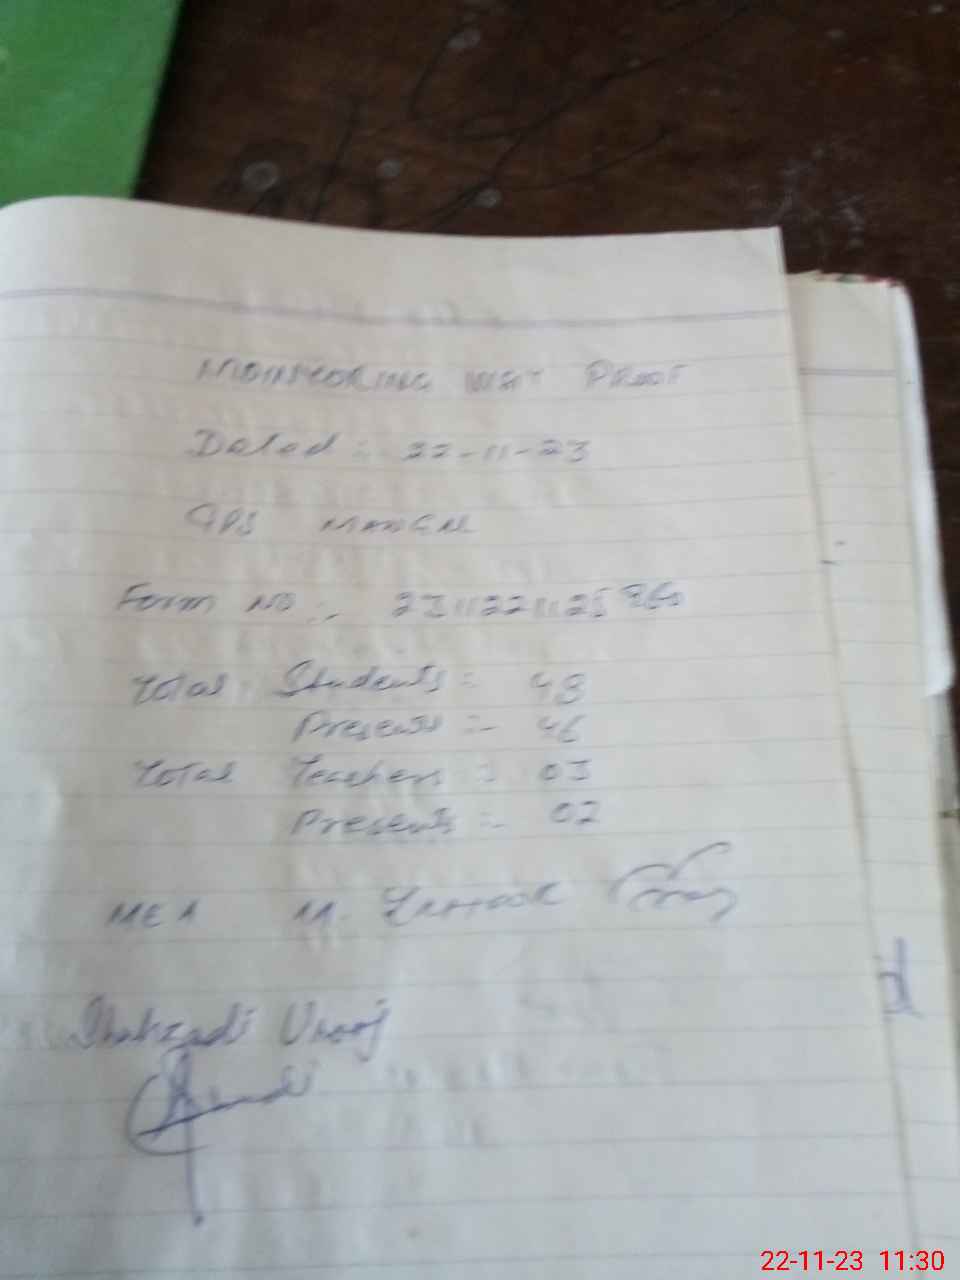 MONITORING VISIT PROOF
Dated :- 22-11-23
GPS
Form NO :-
Total Students :- 48
Presents :- 46
Total Teachers :- 03
Presents :- 02
MEA M.
Shahzadi Urooj
22-11-23 11:30